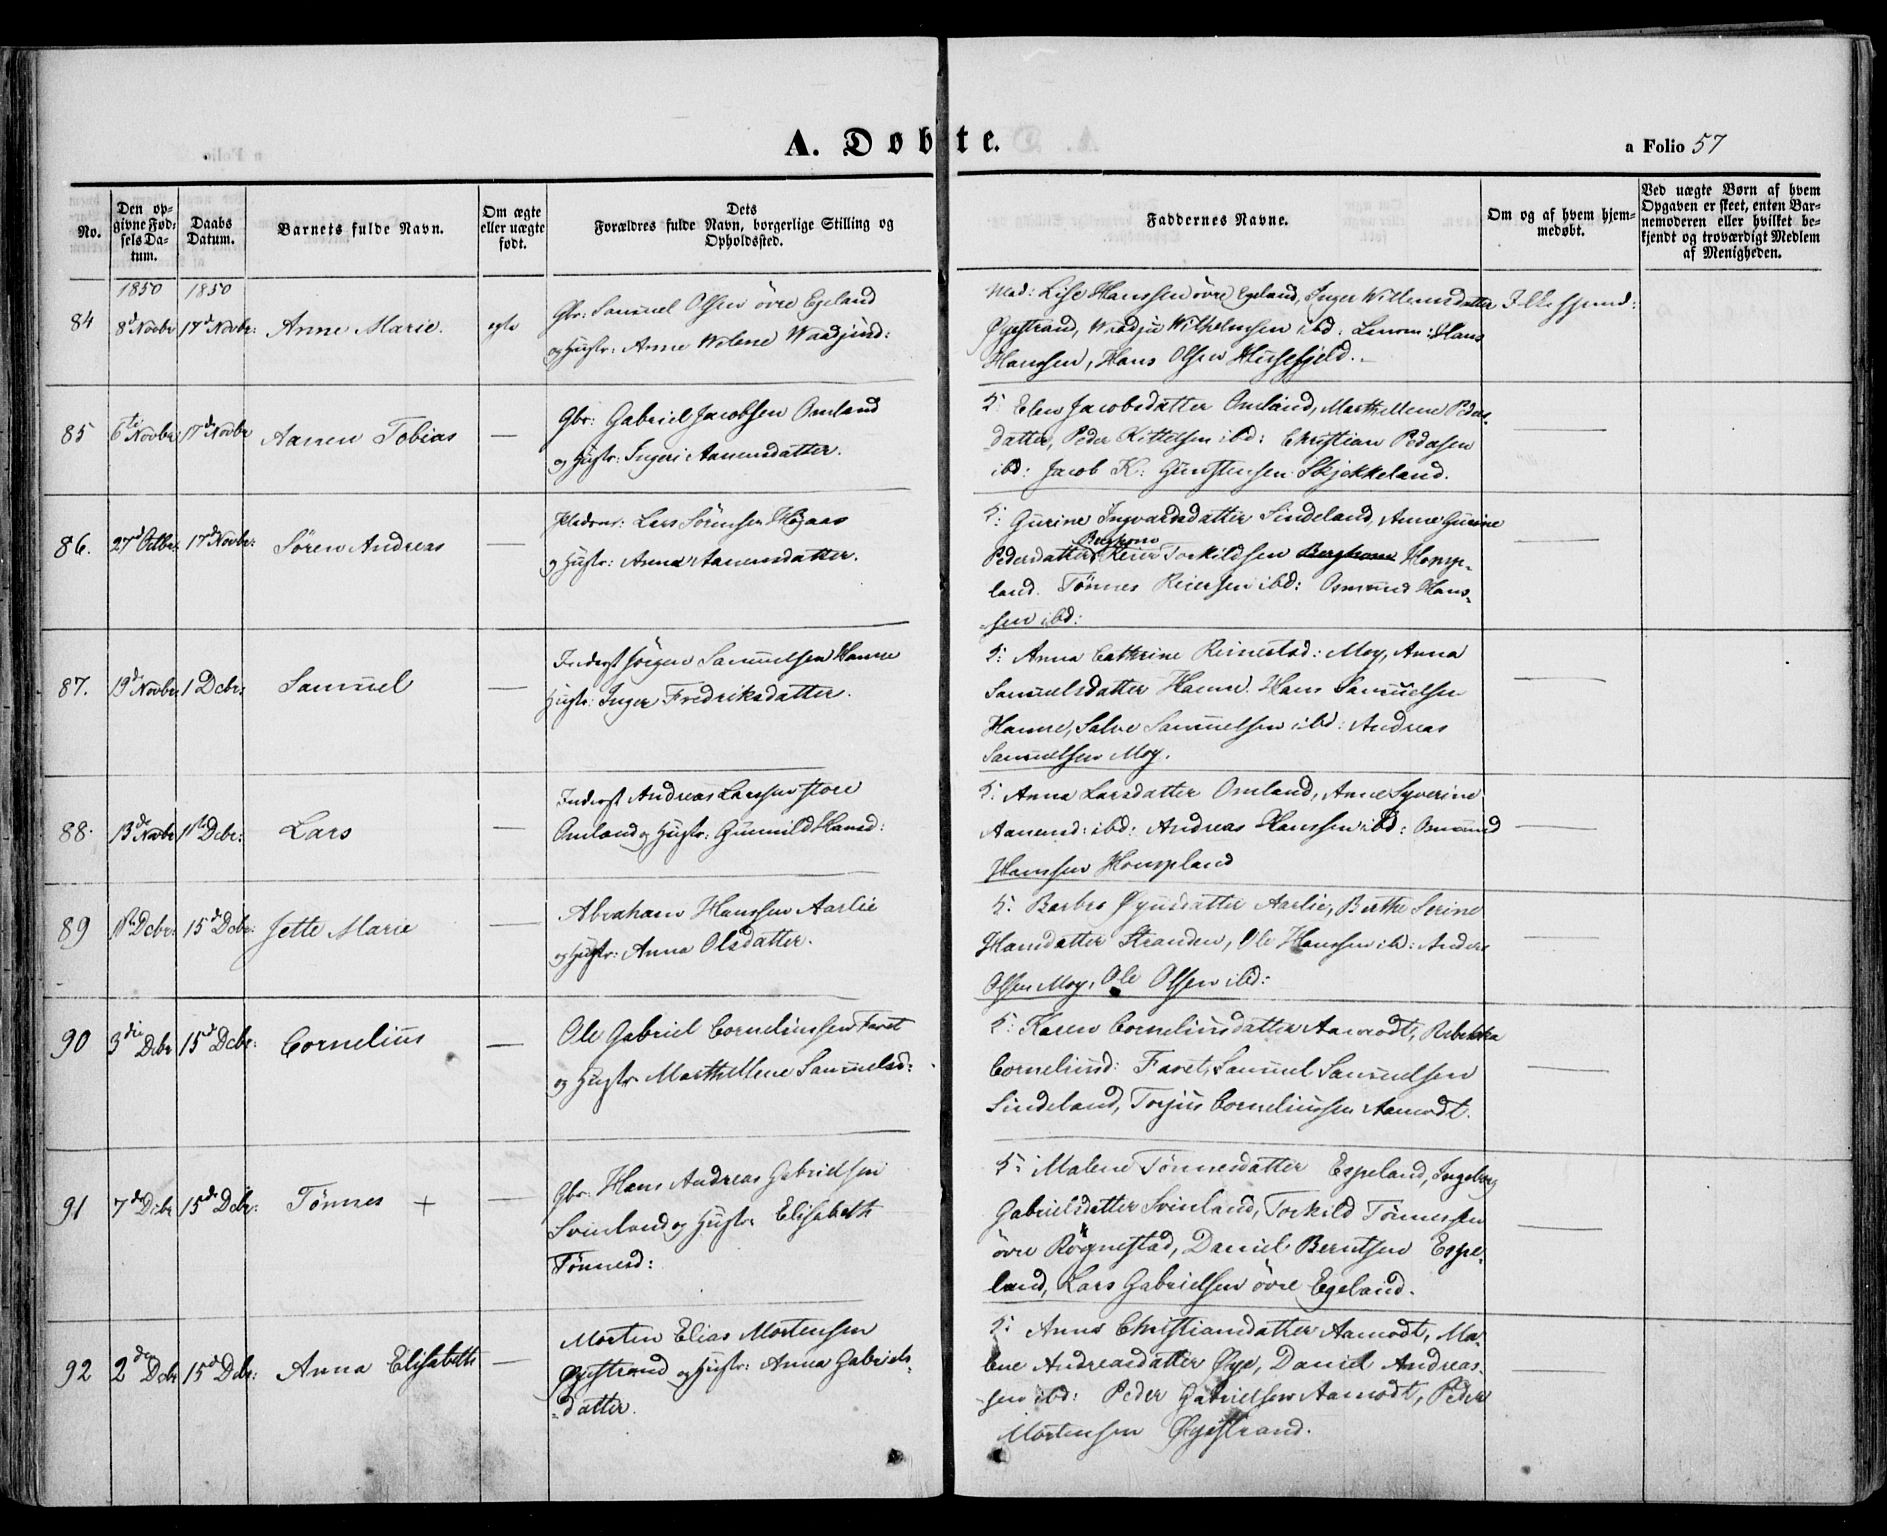 A. Døbte.
a Folio 57
No.
Den opgivne Fødsels Datum.
Daabs Datum.
Barnets fulde Navn.
Om ægte eller uægte født.
Dets Forældres fulde Navn, borgerlige Stilling og Opholdssted.
Faddernes Navne.
Om og af hvem hjemmedøbt.
Ved uægte Børn af hvem Opgaven er skeet, enten Barnemoderen eller hvilket bekjendt og troværdigt Medlem af Menigheden.
1850 1850
84 8d Novbr 17d Novbr: Anne Marie. egte
Gbr: Samuel Olsen övre Egeland
og Hustr: Anne Malene Waadjind:
Mad: Lise Hanssen övre Egeland, Inger Willumsdatter
Øyestrand, Wilhelmsen ibd: Hans
Hanssen, Hans Olsen
85 6te Novbr 17d Novbr Aanen Tobias —
Gbr: Gabriel Jacobsen Omland
og Hustr: Ingeri Aanensdatter.
F: Elen Jacobsdatter Omland, Marth Mene Peders-
datter, Peder Kittelsen ibd: Christian Pedersen
ibd: Jacob K: Gunstensen Skjekkeland.
86. 27d Octbr: 17d Novbr: Sören Andreas —
Pladsm: Lars Sörensen
og Hustr: Anna Aanensdatter.
F: Gurine Ingvardsdatter Sindeland, Anne Gurine
Pedersdatter Berghom Reier Torkildsen Berghom Homp-
land. Tönnes Reiersen ibd: Osmund Hans-
sen ibd:
87. 19d Novbr 1 Dcbr: Samuel —
Inderst Jörgen Samuelsen Hanne
Hustr: Inger Fredriksdatter.
F: Anna Cathrine Reinestad: Moy, Anna
Samuelsdatter Hanne. Hans Samuelsen
Hanne, Salve Samuelsen ibd: Andreas
Samuelsen Moy.
88. 13de Novbr 1ste Dcbr: Lars —
Inderst Andreas Larssen store
Omland og Hustr: Gunnild Hansd:
F: Anna Larsdatter Omland, Anne Syverine
Aanensd: ibd: Andreas Hanssen ibd: Osmund
Hanssen Hompland
89 1ste Dcbr: 15d Dcbr: Jette Marie —
Abraham Hanssen Aarlie
og Hustr: Anna Olsdatter.
F: Barbro Øynsdatter Aarlie, Berthe Serine
Hansdatter Stranden, Ole Hanssen ibd: Anders
Olsen Moy, Ole Olsen ibd:
90 3die Dcbr 15d Dcbr: Cornelius —
Ole Gabriel Corneliussen Faret
og Hustr. Marth Mene Samuelsd:
F: Karen Corneliusdatter Aamodt, Rebekka
Corneliusd: Faret, Samuel Samuelsen
Sindeland, Torjus Corneliussen Aamodt.
91 7de Dcbr 15d Dcbr: Tönnes + —
Gbr. Hans Andreas Gabrielsen
Svinland og Hustr: Elisabeth
Tönnesd:
F: Malene Tönnesdatter Espeland, Ingeborg
Gabrielsdatter Svinland, Torkild Tönnessen
övre Røgnestad, Daniel Berntsen Espe-
land, Lars Gabrielsen övre Egeland.
92 2den Dcbr 15d Dcbr: Anna Elisabeth —
Morten Elias Mortensen
Øyestrand og Hustr: Anna Gabriels-
datter.
F: Anne Christiansdatter Aamodt, Ma-
lene Andreasdatter Øye, Daniel Andreas-
sen ibd: Peder Gabrielsen Aamodt, Peder
Mortensen Øyestrand.